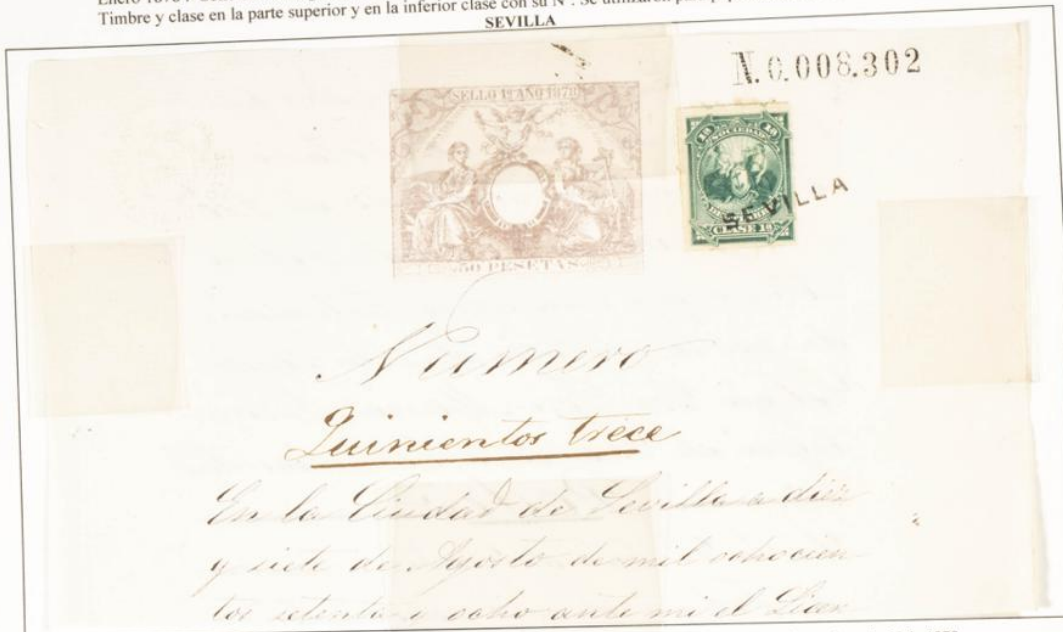 Timbre y clase en la parte superior y en la inferior clase con su Nº. Se utilizaron
SEVILLA
N.0.008.302
SELLO 1º AÑO 1878
50 PESETAS
10 10
SOCIEDAD
CLASE 10
SEVILLA
Numero
Quinientos trece
En la Ciudad de Sevilla a diez
y siete de Agosto de mil ochocien
tos setenta y ocho ante mi el Licen